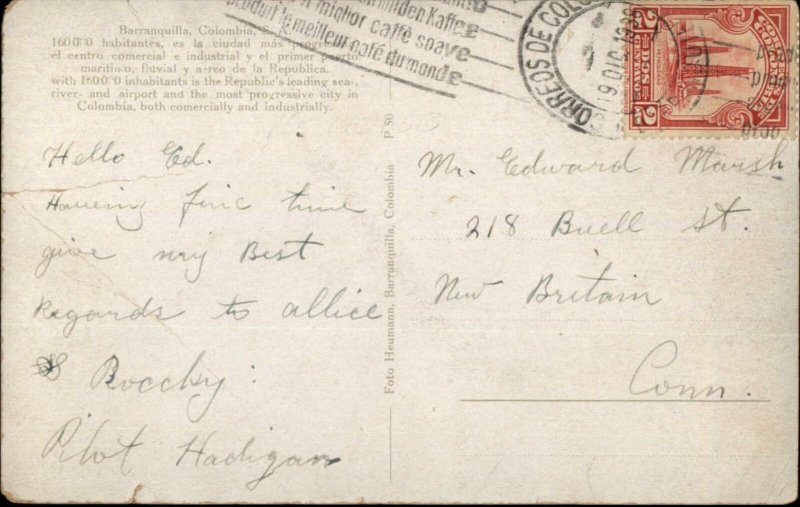 Barranquilla, Colombia, S. A.
160000 habitantes, es la ciudad más progresista
el centro comercial e industrial y el primer puerto
maritimo, fluvial y aereo de la Republica.
with 160000 inhabitants is the Republic's leading sea-,
river- and airport and the most progressive city in
Colombia, both commercially and industrially.
milden Kaffee
miglior caffé soave
produit le meilleur café du monde
CORREOS DE COLO
19 DIC 193
CORREOS
COLOMBIA
2
Hello Ed.
Haveing fine time
give my Best
Regards to allice
& Rocchy:
Pilot Hadigan
Foto Heumann, Barranquilla, Colombia P 50
Mr. Edward Marsh
218 Buell St.
New Britain
Conn.